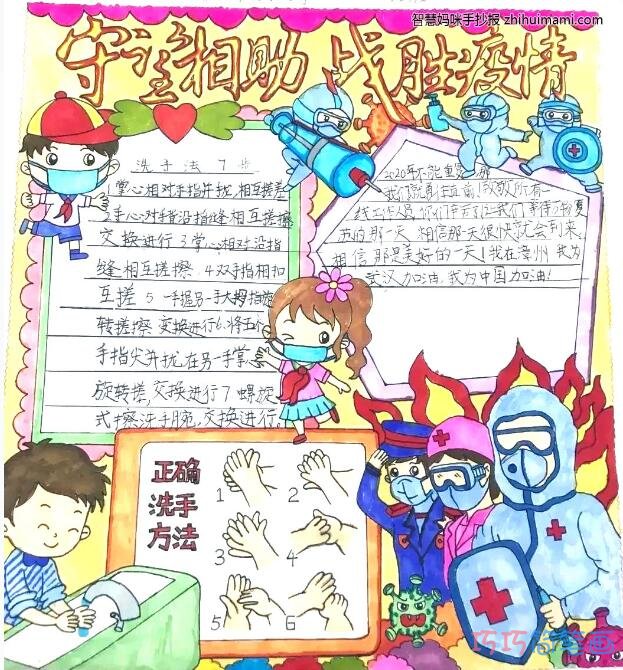 智慧妈咪手抄报 zhihuimami.com
守望相助 战胜疫情
洗手法 7步
1掌心相对手指并拢,相互搓差
2手心对手背沿指缝相互搓擦
交换进行 3掌心相对沿指
缝相互搓擦. 4双手指相扣
互搓 5 一手握另一手大拇指旋
转搓擦 交换进行6.将五个
手指尖并拢在另一手掌
旋转搓,交换进行7 螺旋
式擦洗手腕,交换进行。
2020年不能重
我们就勇往直前!致敬所有一
线工作人员
的那一天 相信那天很快就会到来,
相信那是美好的一天!我在漳州 我为
武汉加油,我为中国加油!
正确
洗手
方法
1
2
3
4
5
6
巧巧